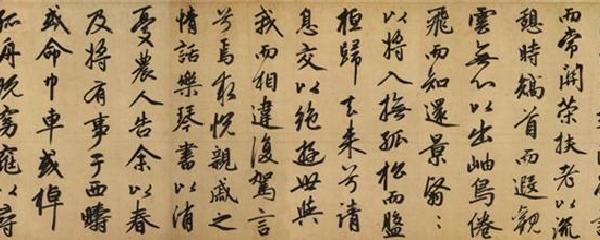 而常關策扶老以流
憩時矯首而遐觀
雲無心以出岫鳥倦
飛而知還景翳〻
以將入撫孤松而盤
桓歸去來兮請
息交以絕遊世與
我而相違復駕言
兮焉求悅親戚之
情話樂琴書以消
憂農人告余以春
及將有事于西疇
或命巾車或棹
孤舟既窈窕以尋